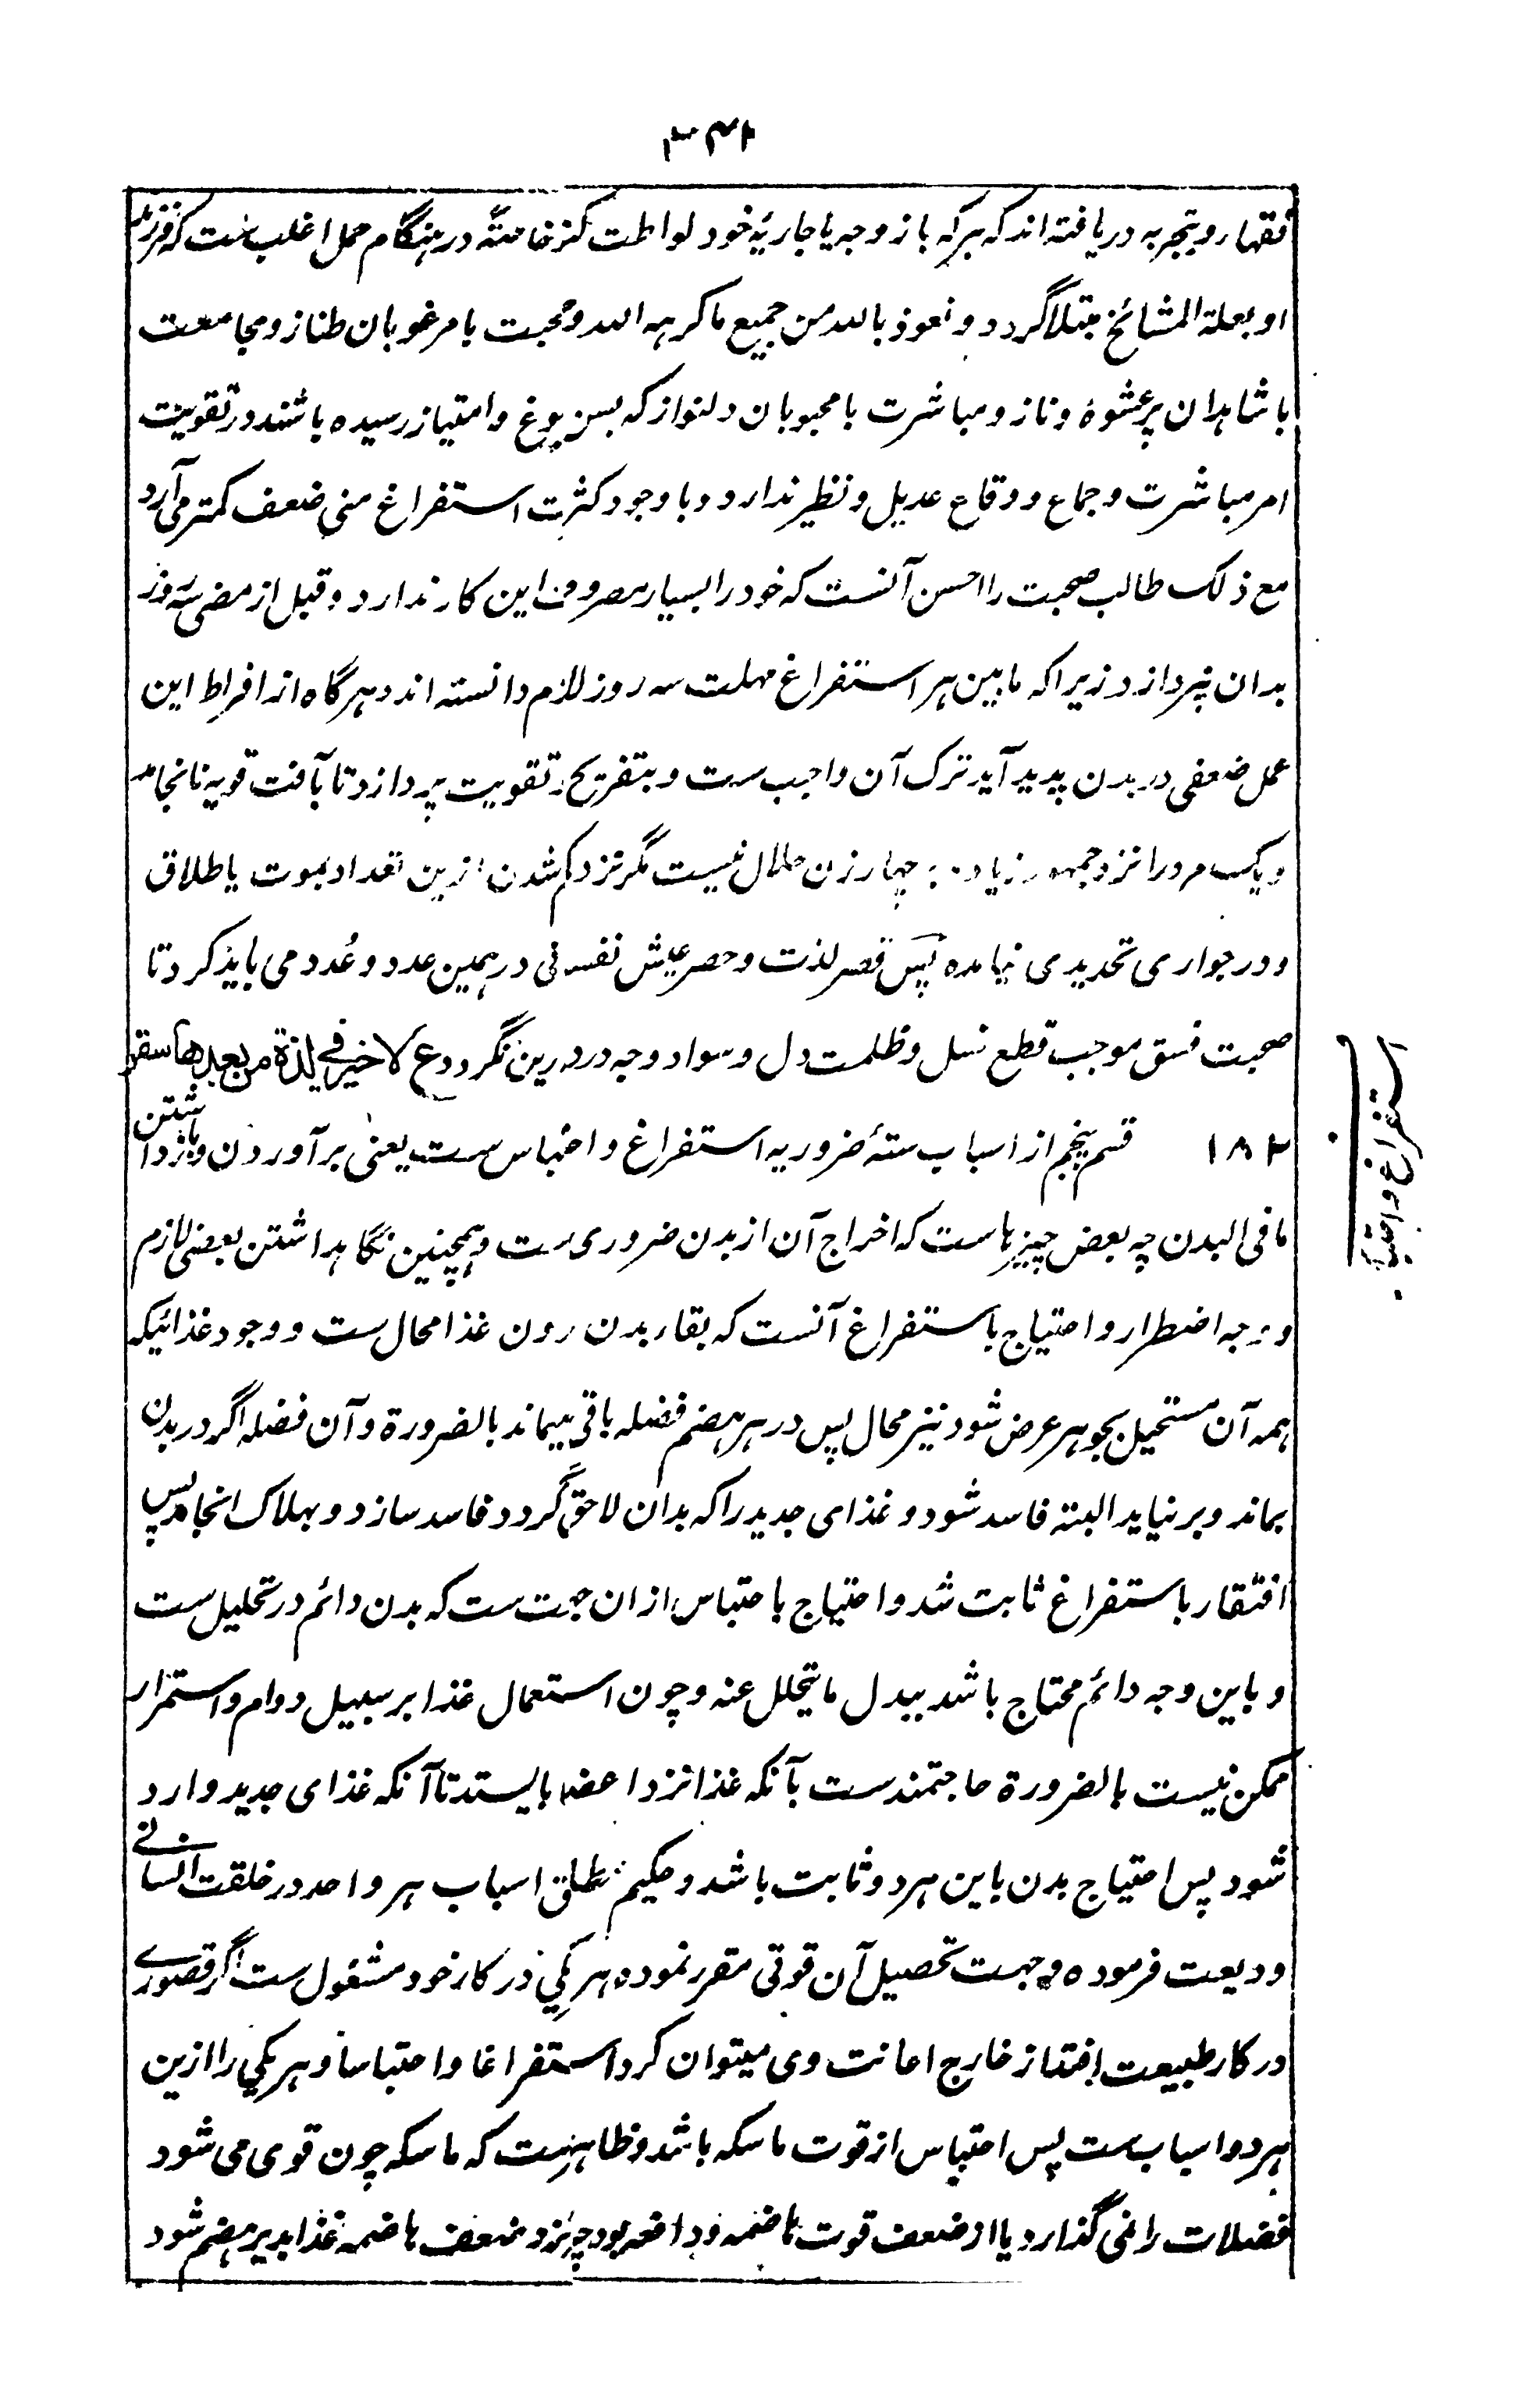 ۳۴۲
فقهاء و بتجربه دریافته اند که هرکه با زوجه یا جاریهٔ خود لواطت کند خاصتةً در هنگام حمل اغلب ست که فرزند
او بعلة المشائخ مبتلا گردد و نعوذ بالله من جمیع ما کرهه الله و صحبت با مرغوبان طناز و مجامعت
با شاهدان پرعشوهٔ و ناز و مباشرت با محبوبان دلنواز که بسن بلوغ و امتیاز رسیده باشند در تقویت
امر مباشرت و جماع و وقاع عدیل و نظیر ندارد و با وجود کثرت استفراغ منی ضعف کمتر می آرد
مع ذلک طالب صحبت را احسن آنست که خود را بسیار مصروف این کار ندارد و قبل از مضی سه روز
بدان نپردازد زیرا که مابین هر استفراغ مهلت سه روز لازم دانسته اند و هرگاه از افراط این
عمل ضعفی در بدن پدید آید ترک آن واجب ست و بتفریح و تقویت پردازد تا بآفت قویه نانجامد
و یک مرد را نزد جمهور زیاده بر چهار زن حلال نیست مگر نزد کم شدن ازین تعداد بموت یا طلاق
و در جواری تحدیدی نیامده پس قصر لذت و حصر عیش نفسانی در همین عدد و عُدد می باید کرد تا
صحبت فسق موجب قطع نسل و ظلمت دل و سواد وجه در دارین نگردد ع لا خیر فی لذة من بعدها سقر
۱۸۲ قسم پنجم از اسباب ستهٔ ضروریه استفراغ و احتباس ست یعنی برآوردن و بازداشتن
ما فی البدن چه بعض چیزهاست که اخراج آن از بدن ضروری ست و همچنین نگاهداشتن بعضی لازم
و وجه اضطرار و احتیاج باستفراغ آنست که بقاء بدن بدون غذا محال ست و وجود غذائیکه
همه آن مستحیل بجوهر عرض شود نیز محال پس در هر هضم فضله باقی بیماند بالضرورة و آن فضله اگر در بدن
بماند و بر نیاید البته فاسد شود و غذای جدید را که بدان لاحق گردد فاسد سازد و بهلاک انجامد پس
افتقار باستفراغ ثابت شد و احتیاج باحتباس ازان جهت ست که بدن دائم در تحلیل ست
و باین وجه دائم محتاج باشد ببدل ما یتحلل عنه و چون استعمال غذا بر سبیل دوام و استمرار
ممکن نیست بالضرورة حاجتمندست بآنکه غذا نزد اعضا بایستد تا آنکه غذای جدید وارد
شود پس احتیاج بدن باین هر دو ثابت باشد و حکیم مطلق اسباب هر واحد در خلقت انسانے
ودیعت فرموده و جهت تحصیل آن قوتی مقرر نموده هر یکی در کار خود مشغول ست اگر قصورے
در کار طبیعت افتد از خارج اعانت وی میتوان کرد استفراغا و احتباسا و هر یکی را ازین
هر دو اسباب ست پس احتباس از قوت ماسکه باشد و ظاهرست که ماسکه چون قوی می شود
فضلات را نمی گذارد یا از ضعف قوت هاضمه و دافعه بود چه نزد ضعف هاضمه غذا بدیر هضم شود
استفراغ و احتباس